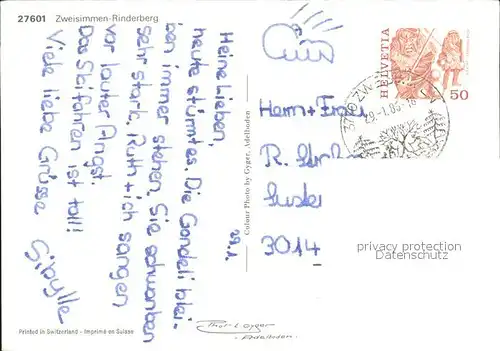 27601 Zweisimmen-Rinderberg
29.1.
Meine Lieben,
heute stürmt es. Die Gondeli blei-
ben immer stehen. Sie schwanken
sehr stark. Ruth + ich sangen
vor lauter Angst.
Das Skifahren ist toll!
Viele liebe Grüsse
Colour Photo by Gyger, Adelboden
HELVETIA
50
Herrn + Frau
R.
3014
privacy protection
Datenschutz
Printed in Switzerland - Imprimé en Suisse
Gyger
Adelboden